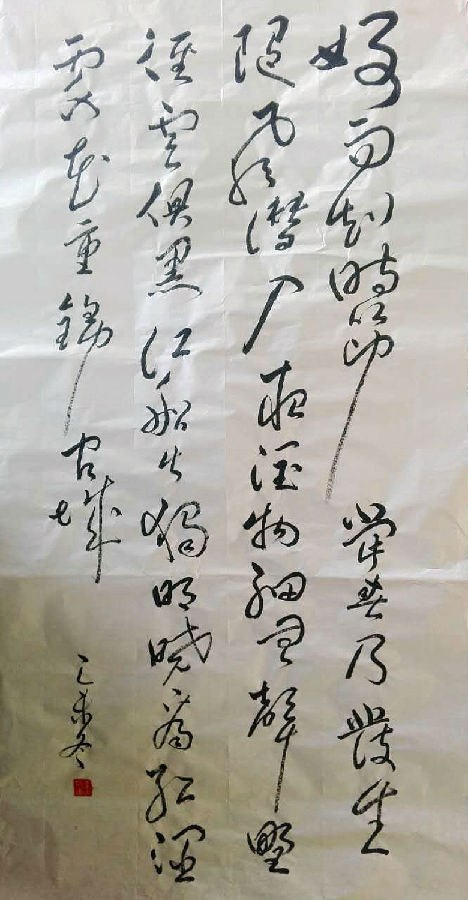 好雨知時節當春乃發生
隨風潛入夜潤物細無聲野
徑雲俱黑江船火獨明曉看紅濕
處花重錦官城
未冬